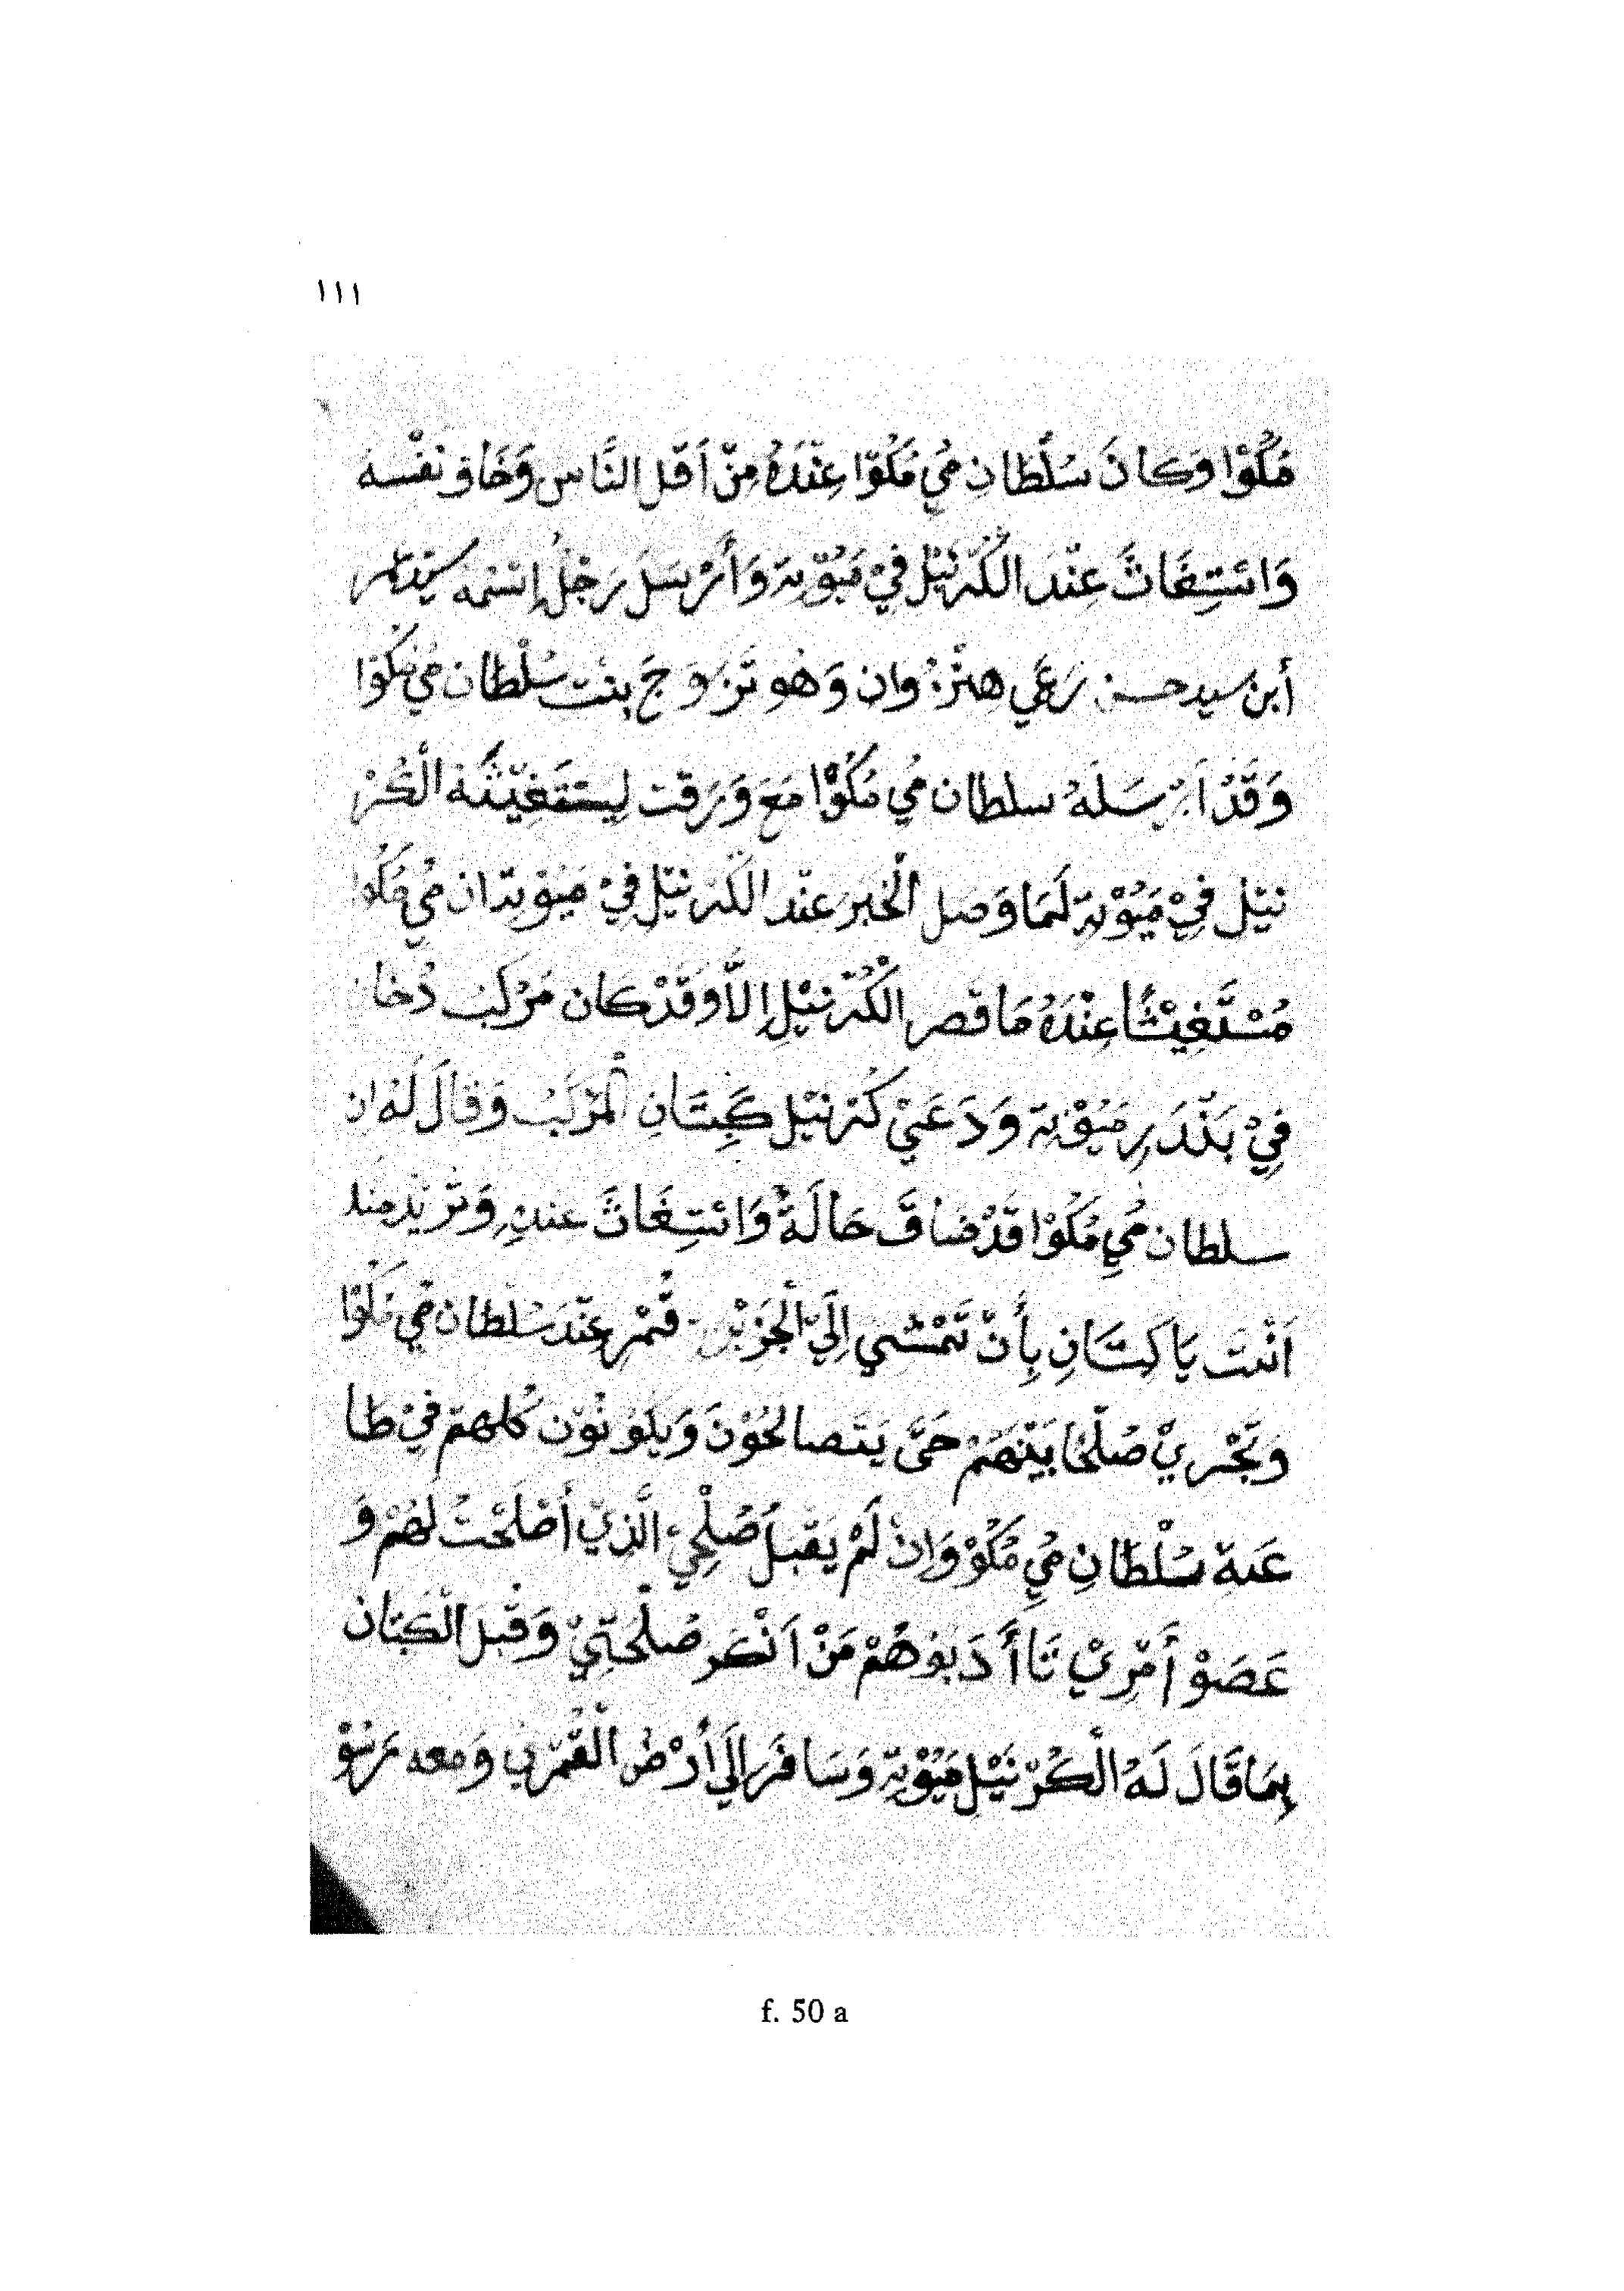 ١١١
مُكُوْا وَكَانَ سُلْطَانِ مُيِ مُكُوْا عِنْدَهُ مِنْ أَقَل النَّاسِ وَخَاف نَفْسه
وَائْتِغَاثَ عِنْدَ الْكُرْنَيْل فِيْ مَيُوْتِة وَأَرْسَلَ رَجُلُ إِسْمُهُ سيد عمر
أبن سيد حسن رَعَيِ هِنْزُوان وَهُو تَزَوَجَ بِنْت سُلْطَان مُيِ مُكُوْا
وَقَدْ اَرْسَلَهُ سلطان مُيِ مُكُوْا مَعَ وَرَقت لِيسْتَغِيْثُهُ الْكُرْ
نَيْل فِيْ مَيُوْتِة لَمَا وَصل الْخَبر عنْد الْكُرْنَيْل فِيْ مَيُوْتِة ان مُيِ مُكُوا
مُسْتَغِيْثًا عِنْدَهُ مَا قصر الْكُرْنَيْل اِلاَّ وَقَدْ كان مَرْكَبُ دُخَان
فِيْ بَنْدَرِ مَيُوْتِة وَدَعَيْ كُرْنَيْل كَبِتَانِ الْمَرْكَبُ وَقَالَ لَهُ ان
سلطان مُيِ مُكُوْا قَدْ ضَاقَ حَالَهُ وَائْتِغَاثَ عندِهِ وَنُرِيْد منك
اَنْتَ يَا كَبِتَانِ بِأَنْ تَمْشِي اِلَيْ الْجَزِيْرَة فَمُرْ عِنْدَ سُلْطَان مُيِ مُكُوْا
وَتَجْرِيْ صُلْحًا بَيْنَهُمْ حَتَّى يَتَصالحُوْنَ وَيَكُوْنُوْن كُلهمْ فِيْ طَا
عَة سُلْطَانِ مُيِ مُكُوْ وَاِنْ لَمْ يَقْبَل صُلْحِيْ الَّذِيْ أَصْلَحْتُ لَهُمْ وَ
عَصَوْ أَمْرِيْ نَاأَدَبُوهُمْ مَنْ اَنْكَر صُلْحَتِيْ وَقَبَل الْكَبِتَان
بِمَا قَالَ لَهُ الْكُرْنَيْل مَيُوْتِة وَسَافَرَ اِلَيَ أَرْض الْقُمْرِي وَمعه
f. 50 a